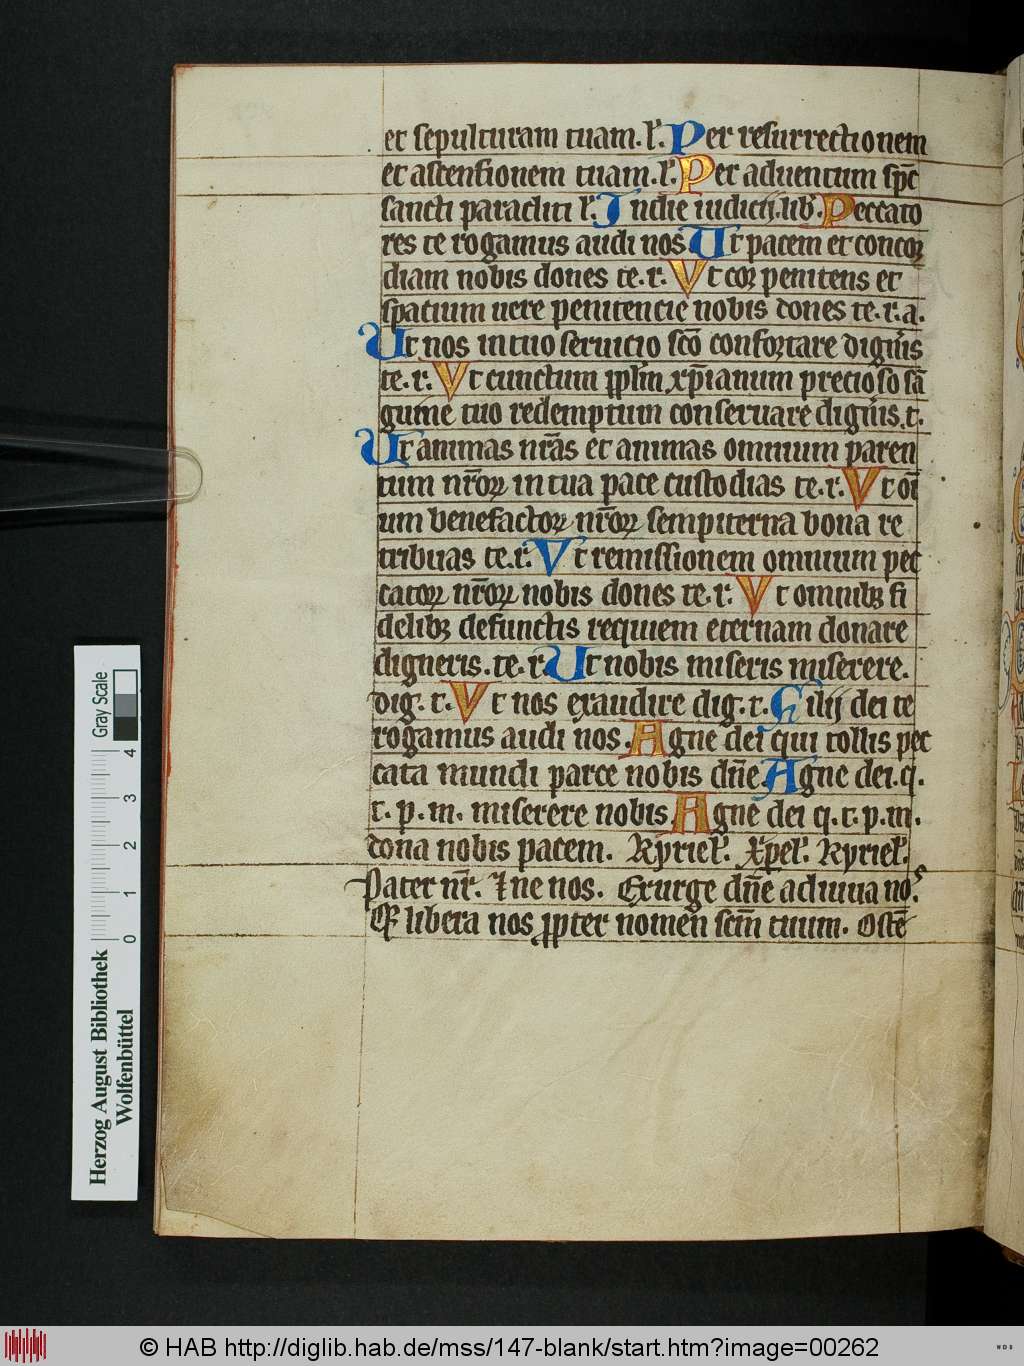 et sepulturam tuam. l'. Per resurrectionem
et ascensionem tuam. l'. Per aduentum sp̄c
sancti paracliti l'. In die iudicij. lib'. Peccato
res te rogamus audi nos. Ut pacem et concoꝛ
diam nobis dones te. r. Ut coꝛ penitens et
spatium uere penitencie nobis dones te. r. a.
Ut nos in tuo seruicio sc̄o confoꝛtare digneris
te. r. Ut cunctum pplm̄ xp̄ianum precioso sā
guine tuo redemptum conseruare digneris. t.
Ut animas nr̄as et animas omnium paren
tum nr̄oꝝ in tua pace custodias te. r. Ut oī
um benefactoꝝ nr̄oꝝ sempiterna bona re
tribuas te. r. Ut remissionem omnium pec
catoꝝ nr̄oꝝ nobis dones te. r. Ut omnibꝫ fi
delibꝫ defunctis requiem eternam donare
digneris. te. r. Ut nobis miseris miserere.
dig. t. Ut nos exaudire dig. t. Filij dei te
rogamus audi nos. Agne dei qui tollis pec
cata mundi parce nobis dn̄e Agne dei. q.
t. p. m. miserere nobis. Agne dei q. t. p. m.
dona nobis pacem. Kyriel'. Xp̄el'. Kyriel'.
Pater nr̄. Et ne nos. Exurge dn̄e adiuua nos.
Et libera nos ꝓpter nomen scm̄ tuum. Ostē
Herzog August Bibliothek
Wolfenbüttel
Gray Scale
0 1 2 3 4
© HAB http://diglib.hab.de/mss/147-blank/start.htm?image=00262